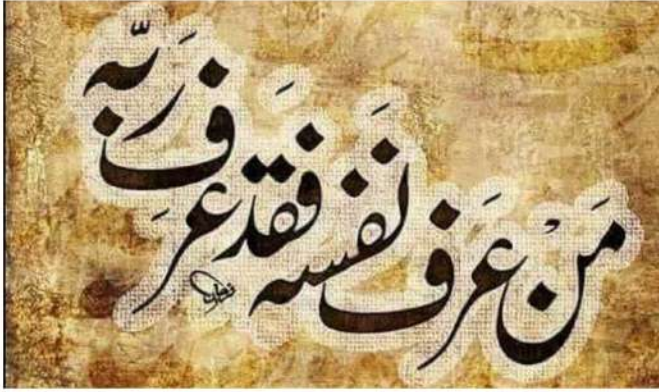 مَنْ عَرَف نَفسه فَقد عَرَف رَبّه